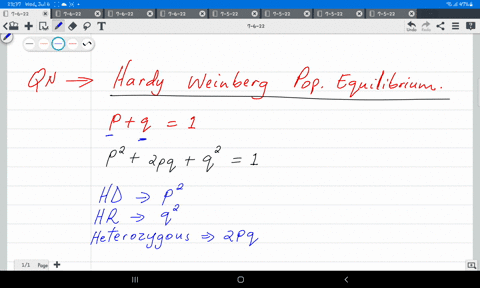 23:37 Wed, Jul 6
81%
7-6-22 7-6-22 7-6-22 7-5-22 7-5-22 7-5-22 7-5-22 7-5-22
7-6-22
Undo Redo
QN → Hardy Weinberg Pop. Equilibrium.
p + q = 1
p² + 2pq + q² = 1
HD → p²
HR → q²
Heterozygous ⇒ 2pq
1/1 Page +